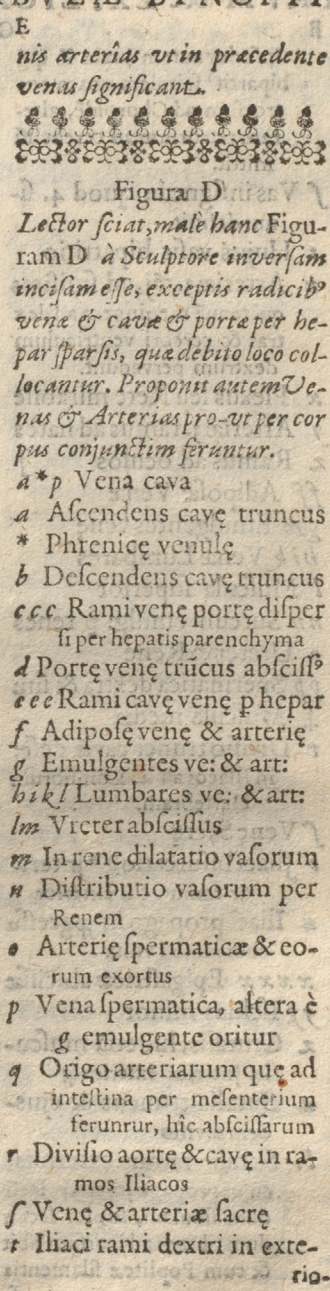 E
nis arterias vt in præcedente
venas ſignificant.
Figura D
Lector ſciat, malè hanc Figu-
ram D à Sculptore inverſam
inciſam eſſe, exceptis radicibꝰ
venæ & cavæ & portæ per he-
par ſparſis, quæ debito loco col-
locantur. Proponit autem Ve-
nas & Arterias pro-vt per cor
pus conjunctim feruntur.
a*p Vena cava
a Aſcendens cavę truncus
* Phrenicę venulę
b Deſcendens cavę truncus
c c c Rami venę portę diſper
ſi per hepatis parenchyma
d Portę venę trũcus abſciſſꝰ
e e e Rami cavę venę p hepar
f Adipoſę venę & arterię
g Emulgentes ve: & art:
h i k l Lumbares ve: & art:
lm Vreter abſciſſus
m In rene dilatatio vaſorum
n Diſtributio vaſorum per
Renem
o Arterię ſpermaticæ & eo-
rum exortus
p Vena ſpermatica, altera è
g emulgente oritur
q Origo arteriarum quę ad
inteſtina per meſenterium
ferunrur, hîc abſciſſarum
r Diviſio aortę & cavę in ra-
mos Iliacos
ſ Venę & arteriæ ſacrę
t Iliaci rami dextri in exte-
rio-